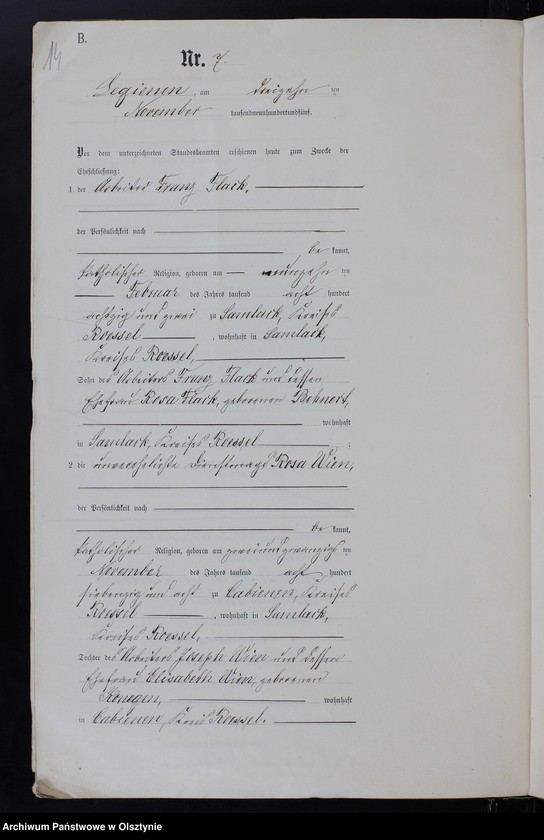 14
B.
Nr. 7.
Legienen, am dreizehn ten
November tausendneunhundertundfünf.
Vor dem unterzeichneten Standesbeamten erschienen heute zum Zwecke der
Eheschließung:
1. der Arbeiter Franz Flack,
der Persönlichkeit nach
be kannt,
katholischer Religion, geboren am neunzehn ten
Februar des Jahres tausend acht hundert
achtzig und zwei zu Samlack, Kreises
Roessel, wohnhaft in Samlack,
Kreises Roessel,
Sohn des Arbeiters Franz Flack und dessen
Ehefrau Rosa Flack, geborenen
wohnhaft
in Samlack, Kreises Roessel;
2 die unverehelichte Dienstmagd Rosa Wien,
der Persönlichkeit nach
be kannt,
katholischer Religion, geboren am zweiundzwanzigs ten
November des Jahres tausend acht hundert
siebenzig und acht zu Cabienen, Kreises
Roessel, wohnhaft in Samlack,
Kreises Roessel,
Tochter des Arbeiters Joseph Wien und dessen
Ehefrau Elisabeth Wien, geborenen
wohnhaft
in Cabienen, Kreis Roessel.
Archiwum Państwowe w Olsztynie